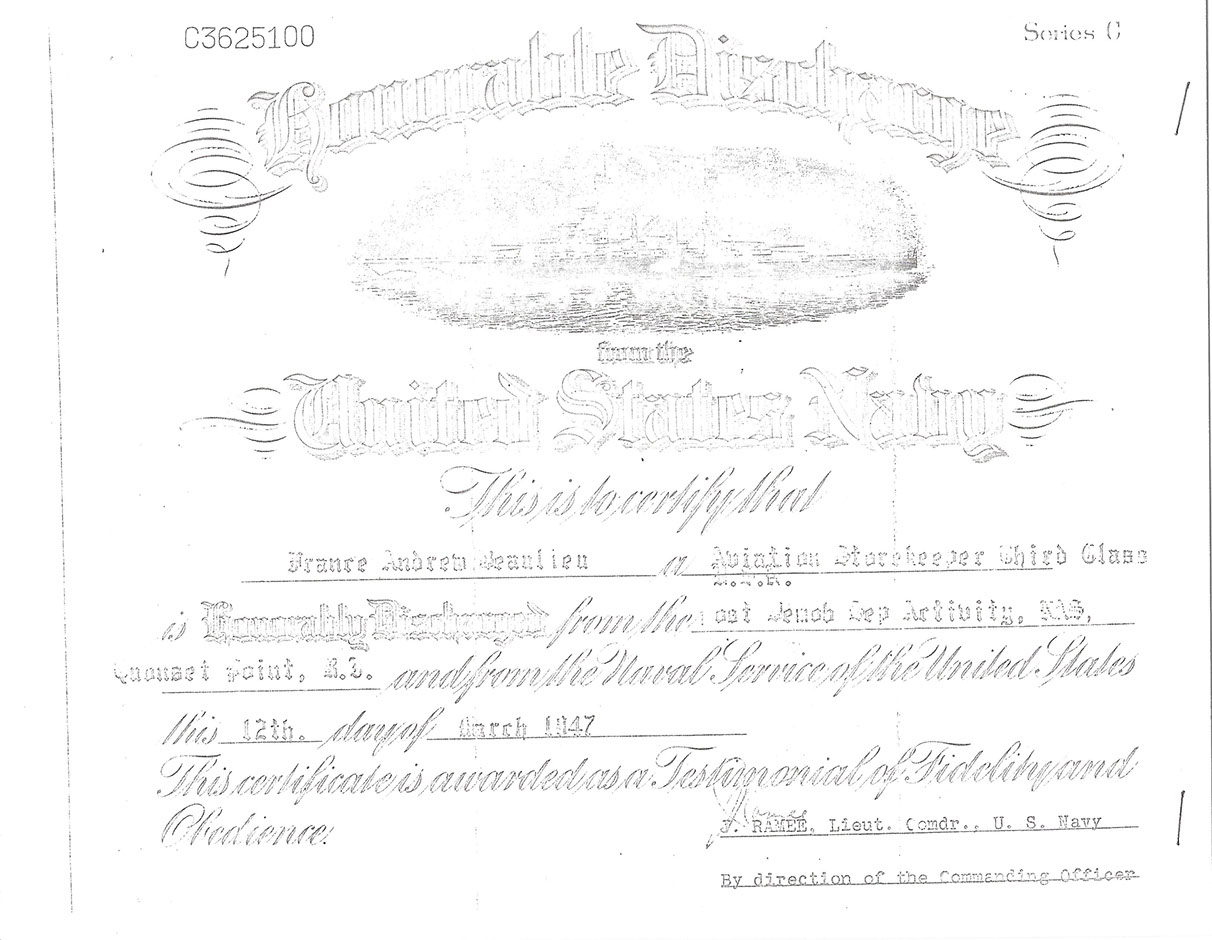 C3625100
Series C
Honorable Discharge
from the
United States Navy
This is to certify that
France Andrew Beaulieu a Aviation Storekeeper Third Class
is Honorably Discharged from the Demob Sep Activity, NAS,
Quonset Point, R.I. and from the Naval Service of the United States
this 12th. day of March 1947
This certificate is awarded as a Testimonial of Fidelity and
Obedience.
J. RAMEE, Lieut. Comdr., U. S. Navy
By direction of the Commanding Officer